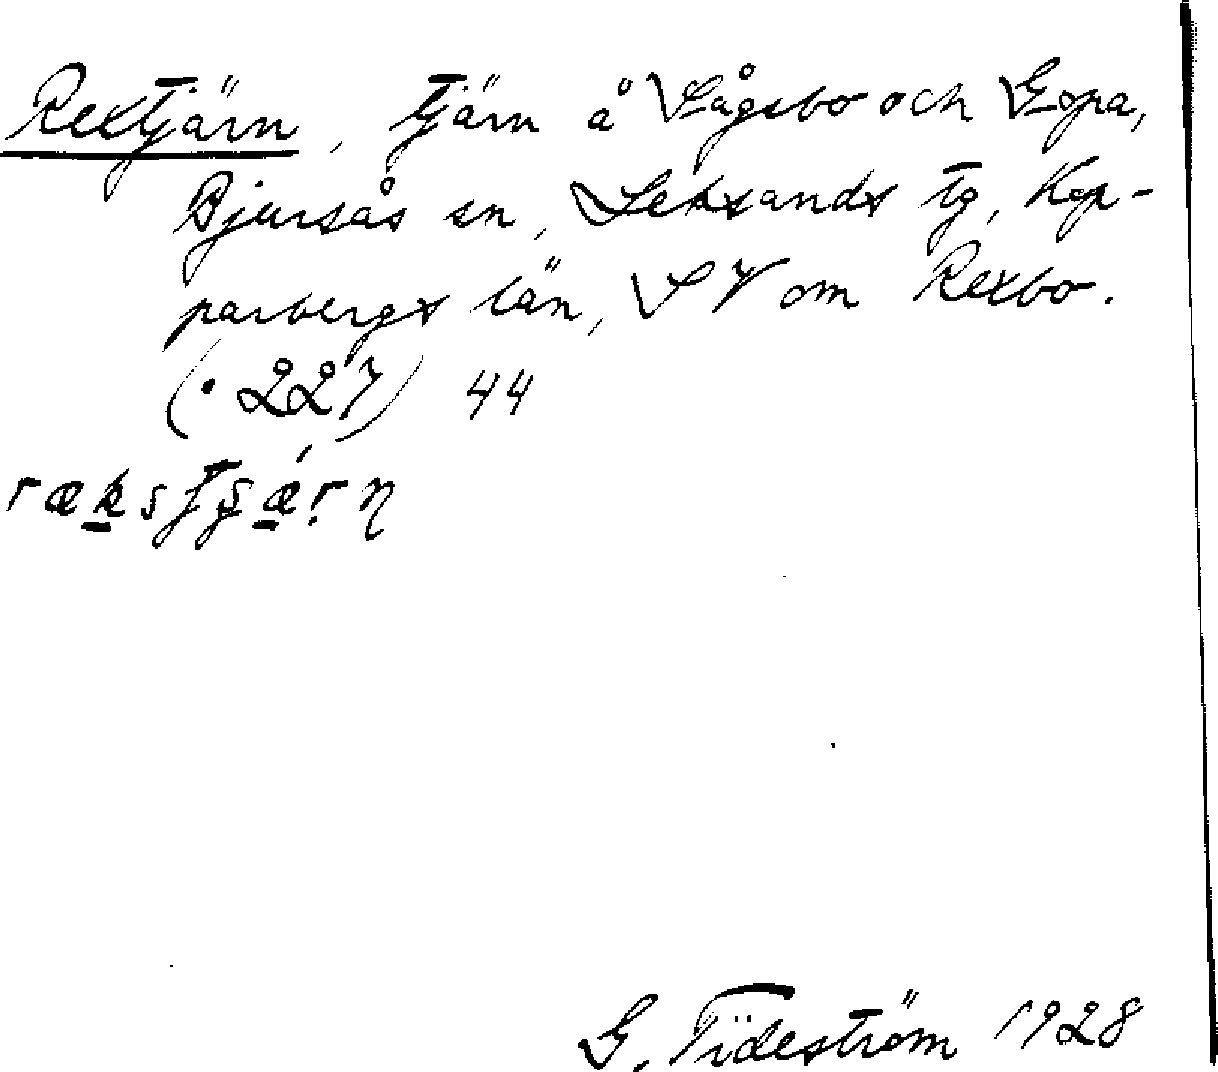 Rextjärn, tjärn å Sågsbo och Gopa,
Bjursås sn, Leksands tg, Kop-
parbergs län, SV om Rexbo.
(· 227) 44
G. Tideström 1928